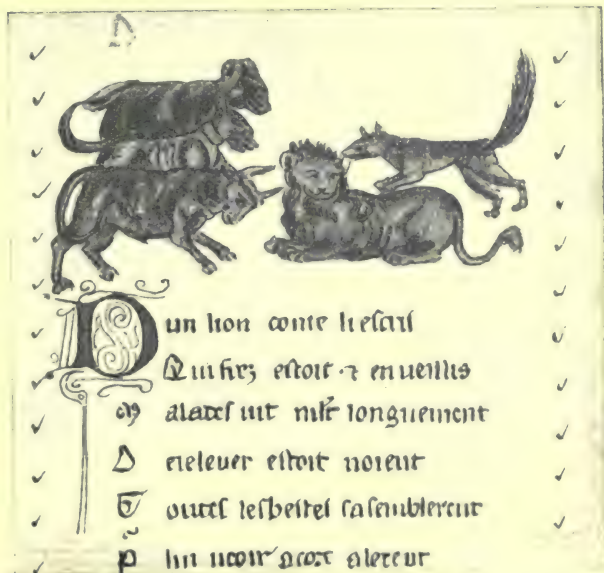 Dun lion conte li escris
Qui fiers estoit ⁊ enueillis
M alades iut mlt longuement
D ereleuer estoit noient
T outes lesbestes sasemblerent
P lui ueoir acort alerent